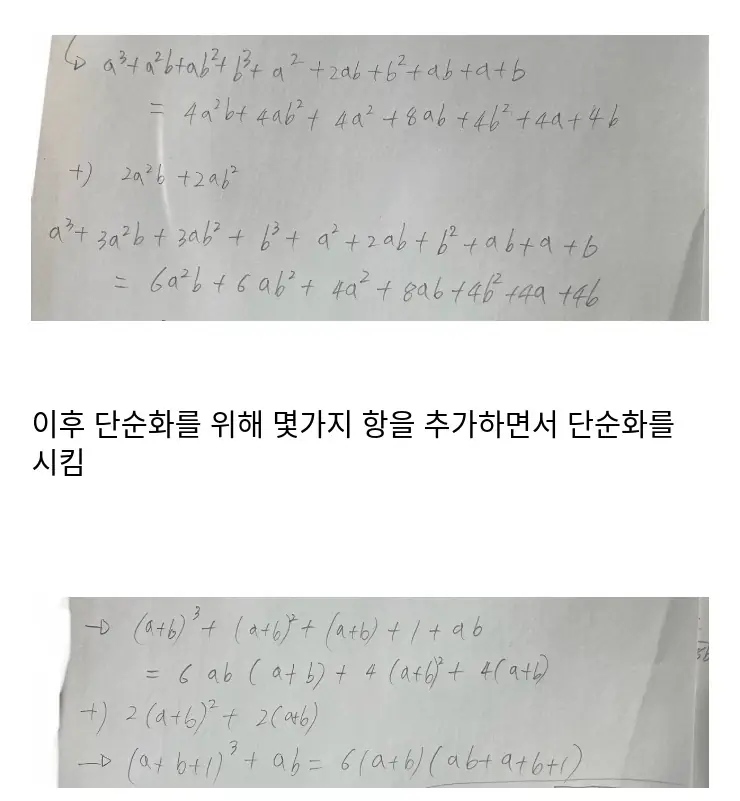 ↳ a³+a²b+ab²+b³+a²+2ab+b²+ab+a+b
= 4a²b+4ab²+4a²+8ab+4b²+4a+4b
+) 2a²b+2ab²
a³+3a²b+3ab²+b³+a²+2ab+b²+ab+a+b
= 6a²b+6ab²+4a²+8ab+4b²+4a+4b
이후 단순화를 위해 몇가지 항을 추가하면서 단순화를
시킴
→ (a+b)³+(a+b)²+(a+b)+1+ab
= 6ab(a+b)+4(a+b)²+4(a+b)
+) 2(a+b)²+2(a+b)
→ (a+b+1)³+ab=6(a+b)(ab+a+b+1)